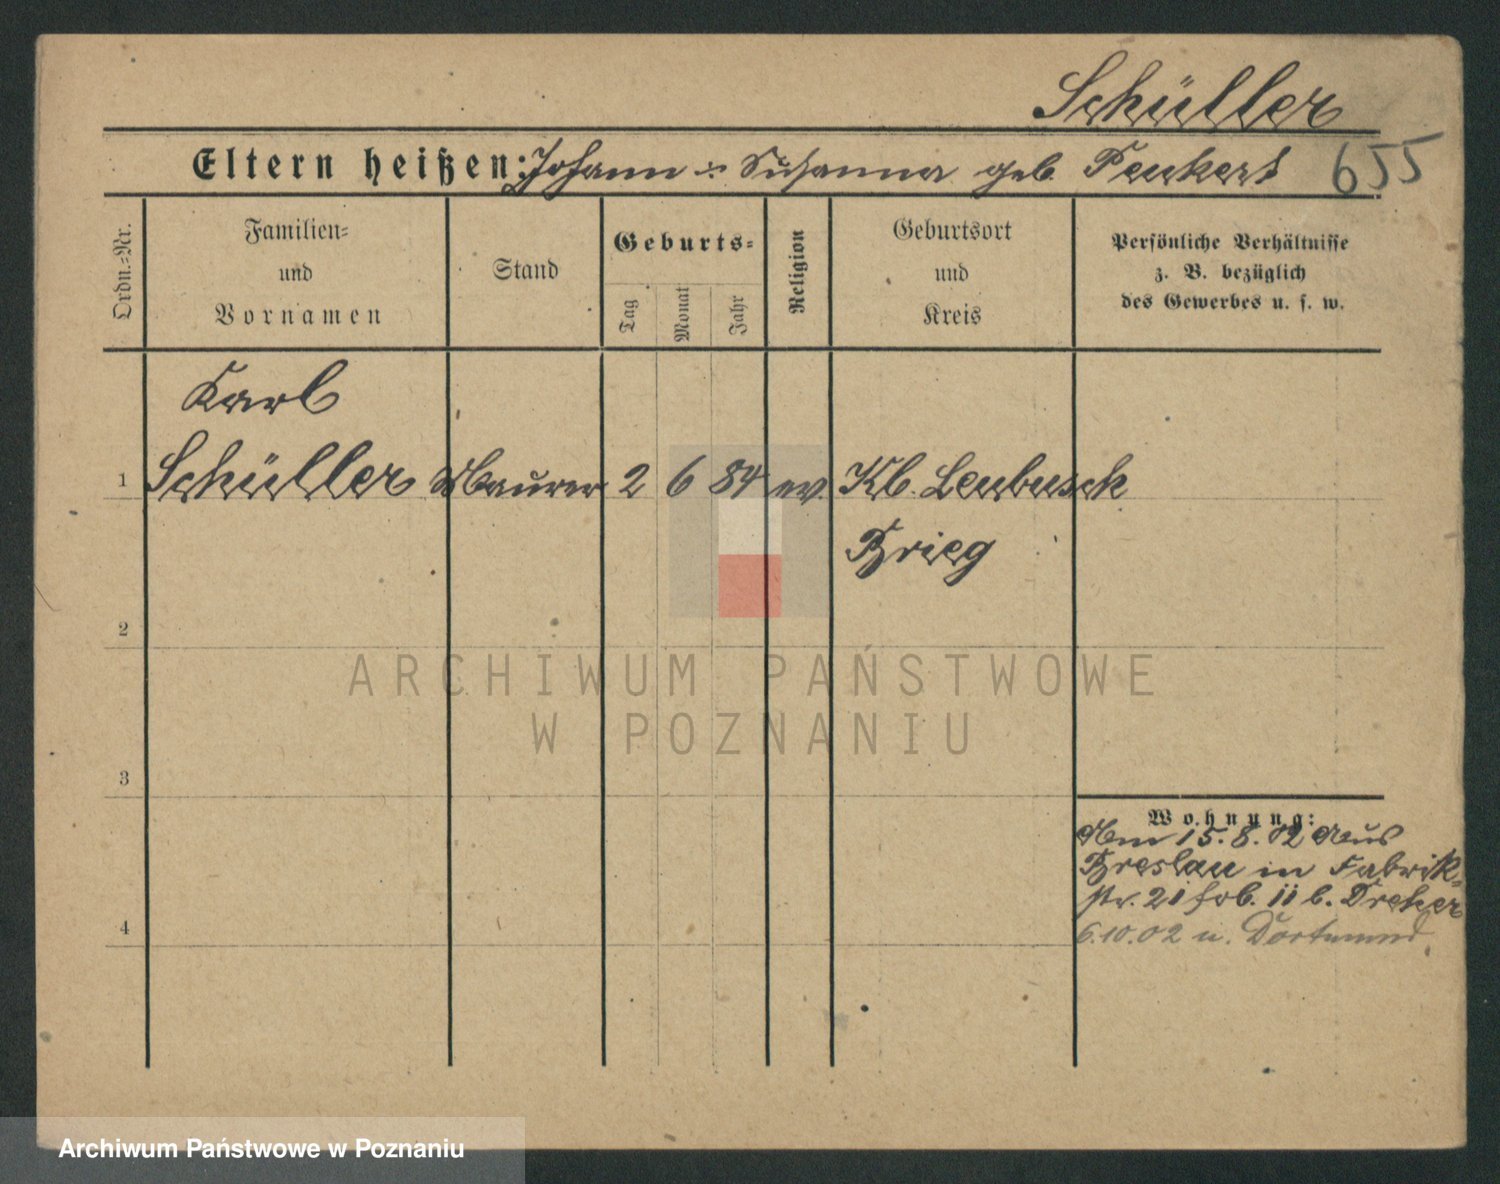 Schüller
Eltern heißen: Johann ÷ Susanna geb. Peukert 655
Ordn.=Nr.
Familien=
und
Vornamen
Stand
Geburts=
Tag
Monat
Jahr
Religion
Geburtsort
und
Kreis
Persönliche Verhältnisse
z. B. bezüglich
des Gewerbes u. s. w.
Karl
1 Schüller Maurer 2 6 84 ev. Kl. Leubusch
Brieg
2
ARCHIWUM PAŃSTWOWE
W POZNANIU
3
Wohnung:
Am 15.8.02 Aus
Breslau in Fabrik=
str. 21 II b. Dreher
4
6.10.02 n. Dortmund.
Archiwum Państwowe w Poznaniu